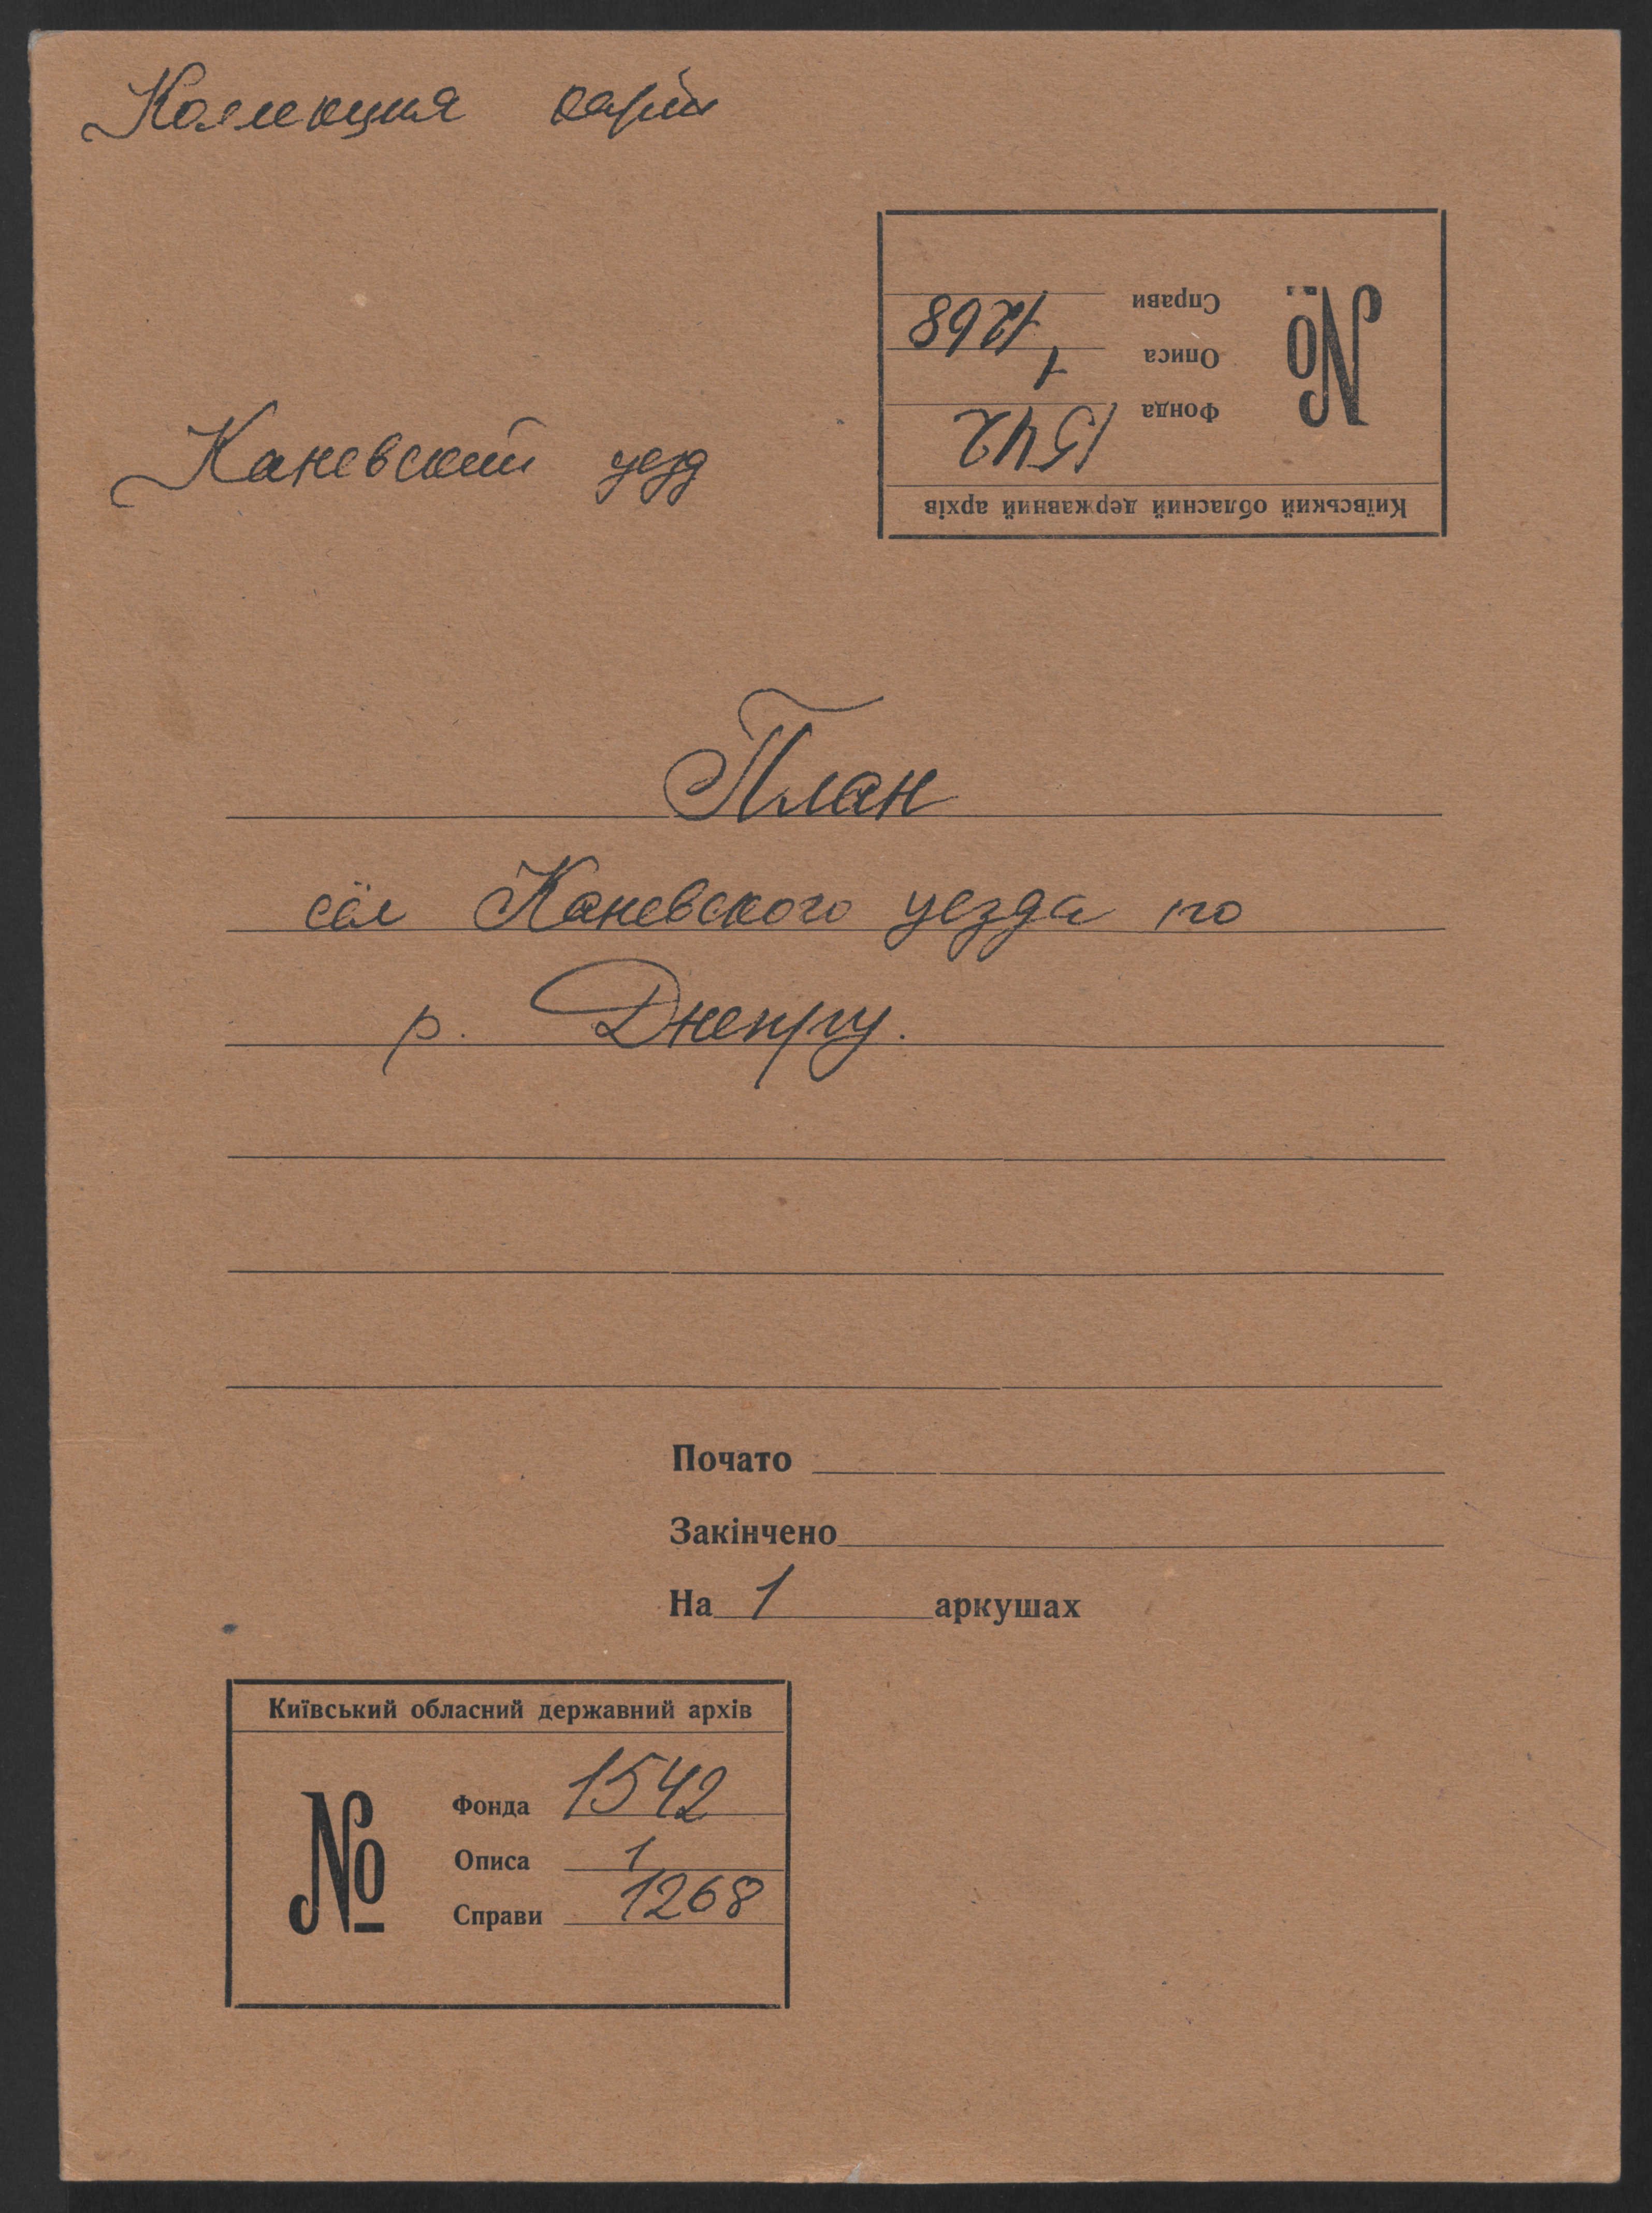 Коллекция карт
Киïвський обласний державний архiв
№
Фонда 1542
Описа 1
Справи 1268
Каневский уезд
План
сёл Каневского уезда по
р. Днепру.
Почато
Закінчено
На 1 аркушах
Київський обласний державний архів
№
Фонда 1542
Описа 1
Справи 1268